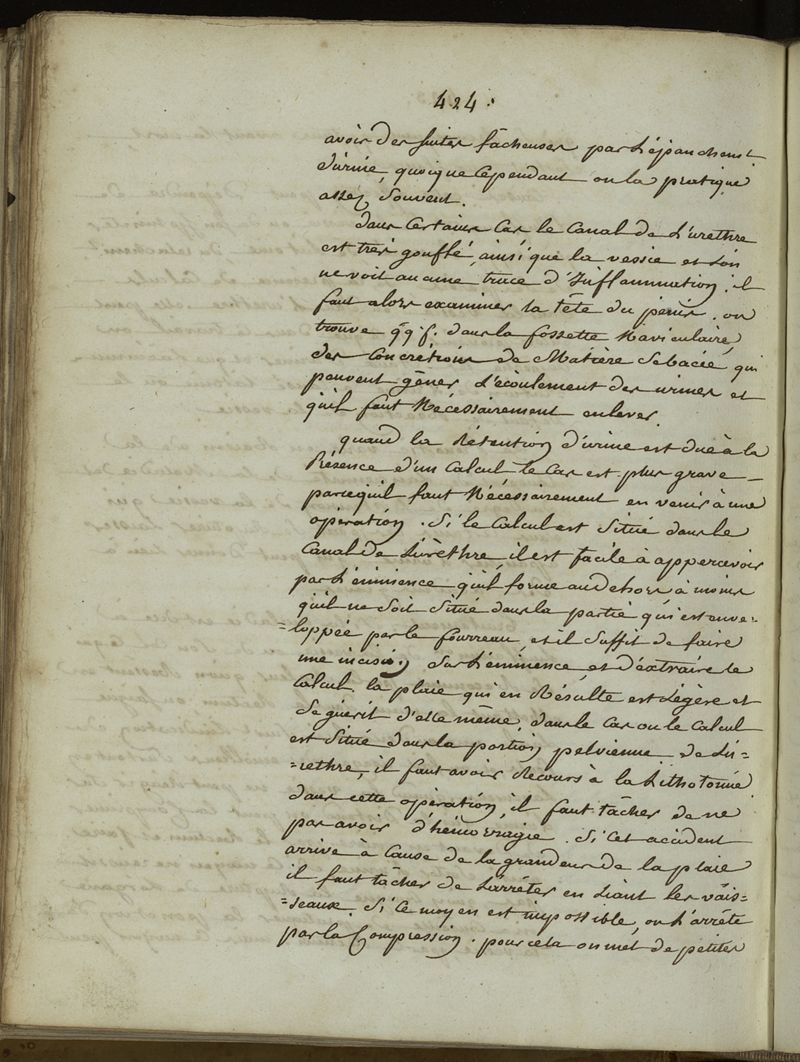 424.
avoir des suites fâcheuses par l'épanchemt
d'urine, quoique cependant on la pratique
assez souvent.
dans certains cas le canal de l'urethre
est très gouflé, ainsi que la vessie et l'on
ne voit aucune trace d'Inflammation. il
faut alors examiner la tête du penis. on
trouve qq f. dans la fossette Naviculaire
des Concrétions de Matière Sebacée qui
peuvent gêner l'écoulement des urines et
qu'il faut Nécessairement enlever.
quand la Rétention d'urine est due à la
Présence d'un Calcul le cas est plus grave
parcequ'il faut Nécessairement en venir à une
opération. Si le calcul est Situé dans le
Canal de L'urèthre, il est facile à appercevoir
par l'éminence qu'il forme au dehors à moins
qu'il ne soit Situé dans la partie qui est enve=
=loppée par le fourreau, et il suffit de faire
une incision sur l'éminence et d'extraire le
Calcul. la plaie qui en Résulte est légère et
Se guérit d'elle même. dans le cas ou le calcul
est Situé dans la portion pelvienne de L'u=
=rethre, il faut avoir Recours à la Lithotomie
dans cette opération, il faut tâcher de ne
pas avoir d'hémorragie. Si cet accident
arrive à cause de la grandeur de la plaie
il faut tâcher de L'arrêter en Liant les vais=
=seaux. Si ce moyen est impossible, on L'arrête
par la Compression. pour cela on met de petites